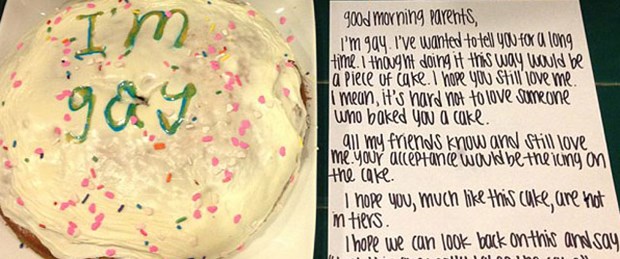 I'm
gay
good morning parents,
I'm gay. I've wanted to tell you for a long
time. I thought doing it this way would be
a piece of cake. I hope you still love me.
I mean, it's hard not to love someone
who baked you a cake.
all my friends know and still love
me. your acceptance would be the icing on
the cake.
I hope you, much like this cake, are not
in tiers.
I hope we can look back on this and say